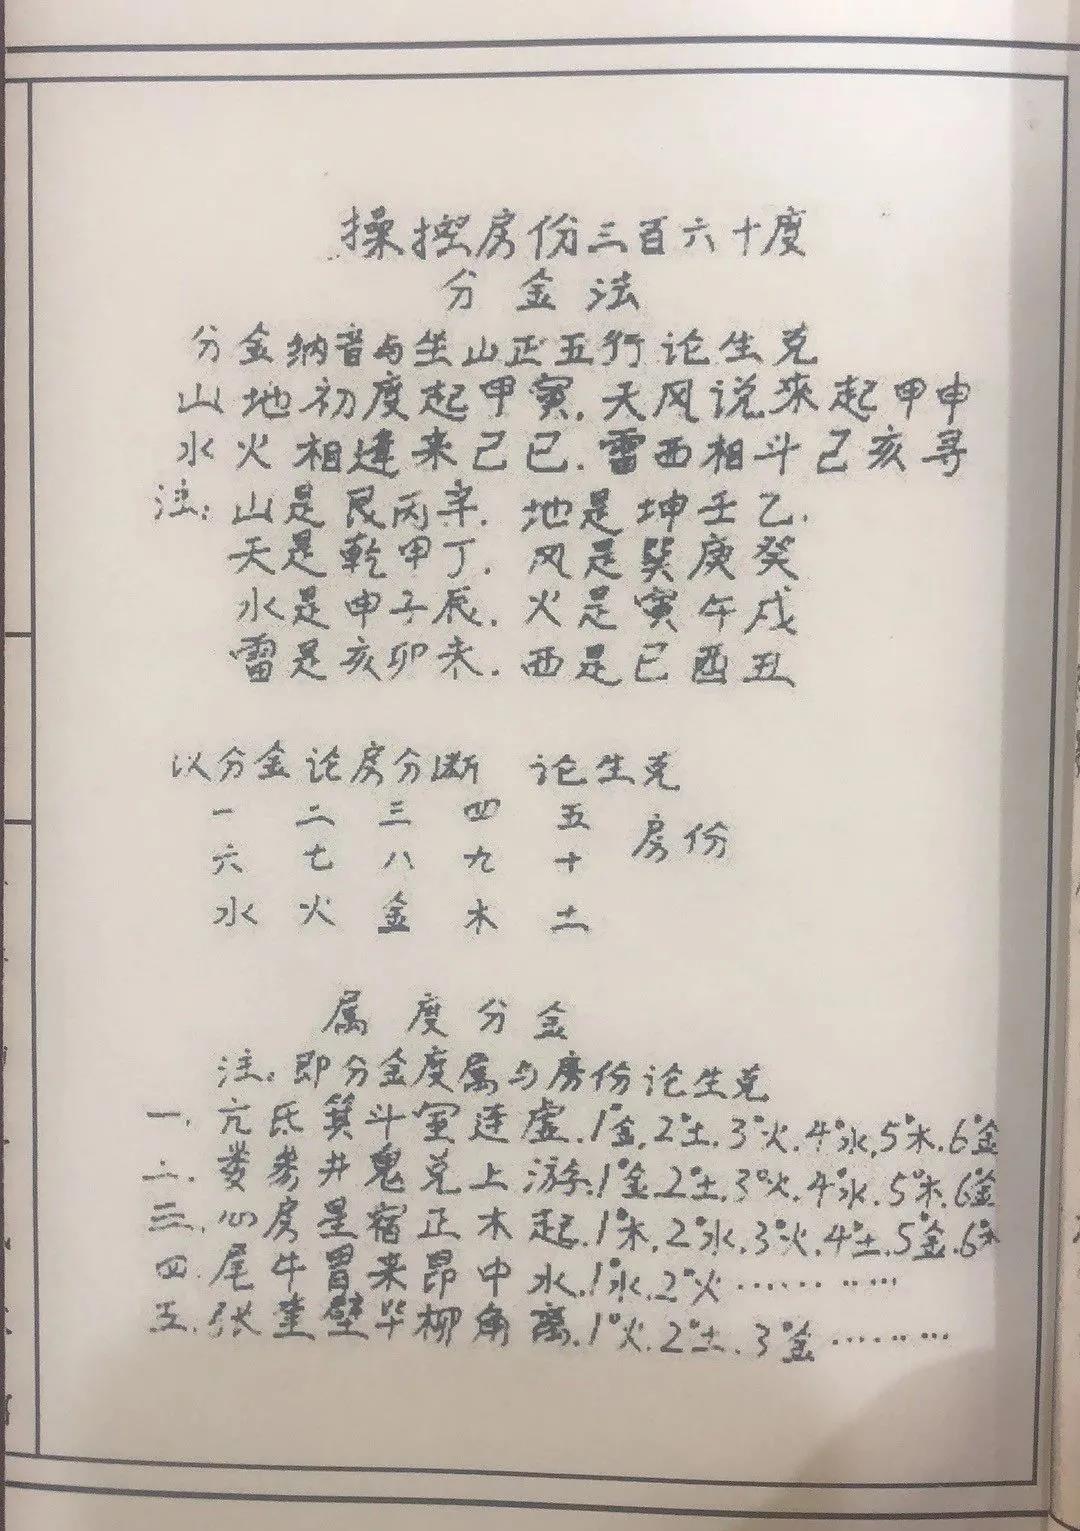 操控房份三百六十度
分金法
分金纳音与坐山正五行论生克
山地初度起甲寅.天风说来起甲申
水火相逢来己巳.雷西相斗己亥寻
注:山是艮丙辛.地是坤壬乙.
天是乾甲丁.风是巽庚癸
水是申子辰.火是寅午戌
雷是亥卯未.西是巳酉丑
以分金论房分断 论生克
一 二 三 四 五 房份
六 七 八 九 十
水 火 金 木 土
属度分金
注:即分金度属与房份论生克
一.亢氐箕斗室连虚.1°金.2°土.3°火.4°水.5°木.6°金
二.娄参井鬼兑上游.1°金.2°土.3°火.4°水.5°木.6°金
三.心房星宿正木起.1°木.2°水.3°火.4°土.5°金.6°木
四.尾牛胃来昂中水.1°水.2°火…………
五.张奎壁毕柳角离.1°火.2°土.3°金………